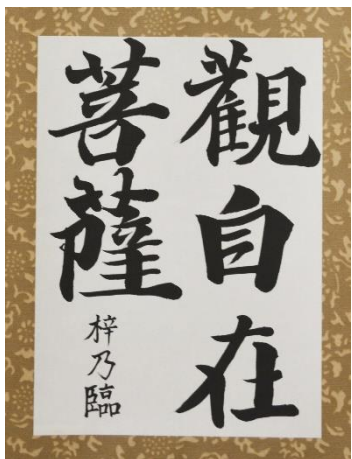 觀自在
菩薩
梓乃臨